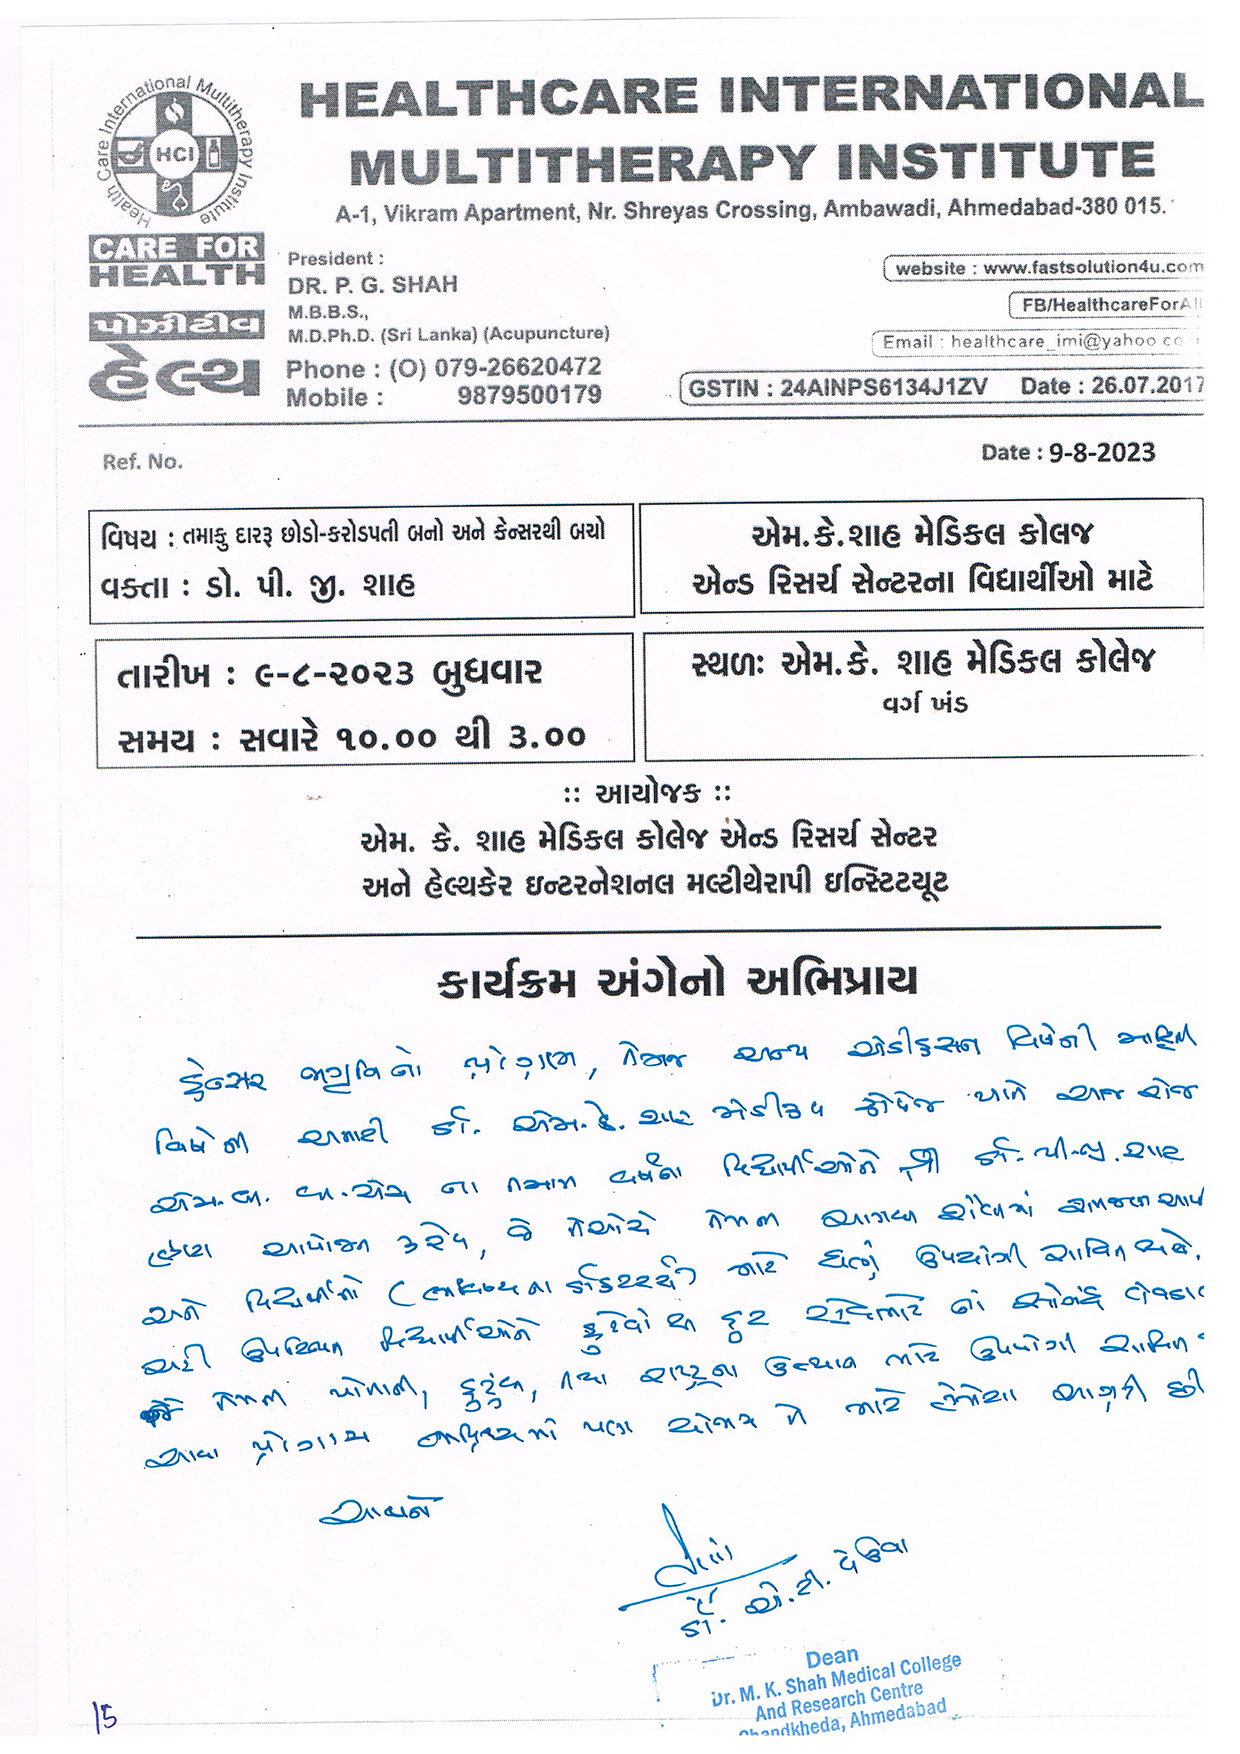 Health Care International Multitherapy Institute
HCI
CARE FOR
HEALTH
પોઝીટીવ
હેલ્થ
HEALTHCARE INTERNATIONAL
MULTITHERAPY INSTITUTE
A-1, Vikram Apartment, Nr. Shreyas Crossing, Ambawadi, Ahmedabad-380 015.
President :
DR. P. G. SHAH
M.B.B.S.,
M.D.Ph.D. (Sri Lanka) (Acupuncture)
Phone : (O) 079-26620472
Mobile : 9879500179
website : www.fastsolution4u.com
FB/HealthcareForAll
Email : healthcare_imi@yahoo.co
GSTIN : 24AINPS6134J1ZV Date : 26.07.2017
Ref. No.
Date : 9-8-2023
વિષય : તમાકુ દારૂ છોડો-કરોડપતી બનો અને કેન્સરથી બચો
વક્તા : ડો. પી. જી. શાહ
એમ.કે.શાહ મેડિકલ કોલજ
એન્ડ રિસર્ચ સેન્ટરના વિદ્યાર્થીઓ માટે
તારીખ : ૯-૮-૨૦૨૩ બુધવાર
સમય : સવારે ૧૦.૦૦ થી ૩.૦૦
સ્થળઃ એમ.કે. શાહ મેડિકલ કોલેજ
વર્ગ ખંડ
:: આયોજક ::
એમ. કે. શાહ મેડિકલ કોલેજ એન્ડ રિસર્ચ સેન્ટર
અને હેલ્થકેર ઇન્ટરનેશનલ મલ્ટીથેરાપી ઇન્સ્ટિટયૂટ
કાર્યક્રમ અંગેનો અભિપ્રાય
કેન્સર જાગૃતિ નો પ્રોગ્રામ, તેમજ અન્ય એડીકસન વિષેની
વિષેની અમારી ડૉ. એમ.કે. શાહ મેડીકલ કોલેજ ખાતે આજ રોજ
ના તમામ વર્ષના વિદ્યાર્થીઓને શ્રી ડૉ. પી.જી. શાહ
આયોજન કરેલ, જે તેઓએ તેમની આગવી શૈલીમાં સમજણ
અને વિદ્યાર્થીનો (ભવિષ્યના ડૉકટર માટે ઘણું ઉપયોગી સાબિત થશે.
ઉપસ્થિત વિદ્યાર્થીઓને
તેમના પોતાની, કુટુંબ, તથા રાષ્ટ્રના ઉત્થાન માટે ઉપયોગી સાબિત
આવા પ્રોગ્રામ ભવિષ્યમાં પણ યોજાય તે માટે
ડૉ.
Dean
Dr. M. K. Shah Medical College
And Research Centre
Chandkheda, Ahmedabad
15